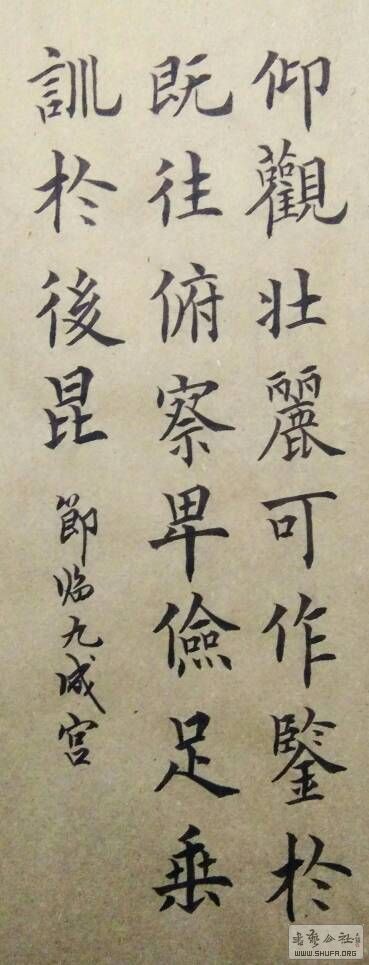 仰觀壯麗可作鑒於
既往俯察卑儉足垂
訓於後昆
節临九成宫
书艺公社
WWW.SHUFA.ORG